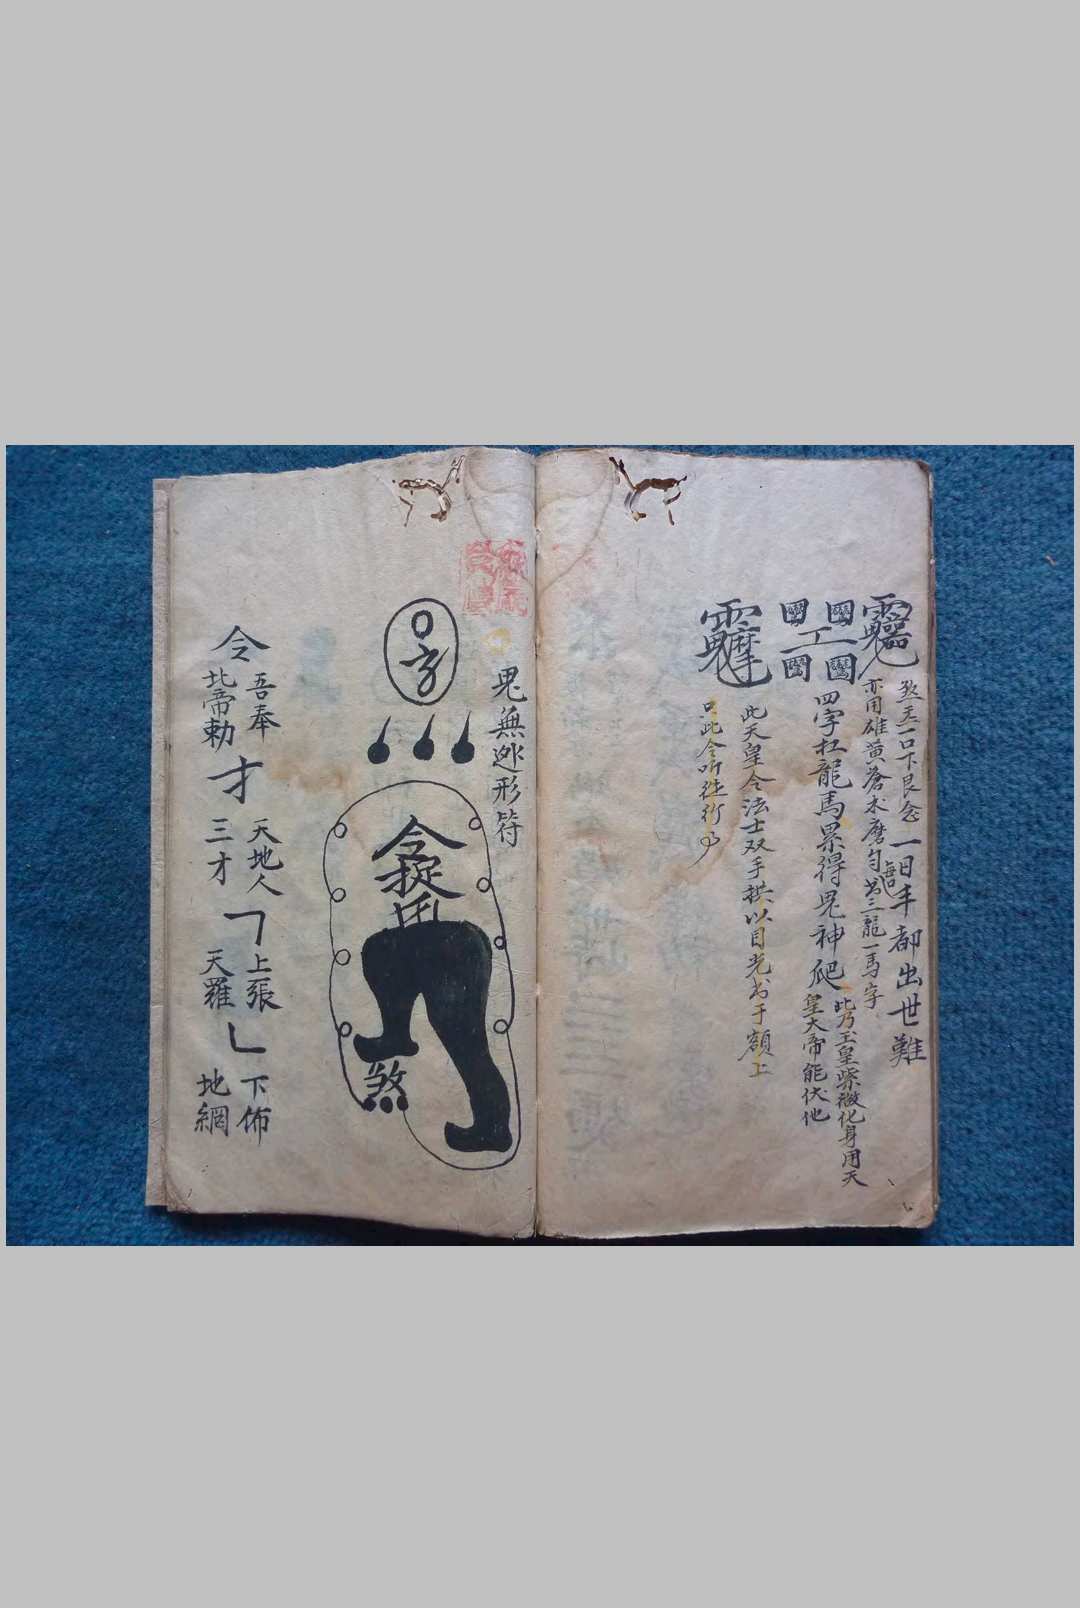 一日年都出世難
亦用雄黄蒼术磨勻书三龍一馬字
四字扛龍馬累得鬼神爬
此乃玉皇紫微化身用天
皇大帝能伏他
此天皇令法士双手拱以目光书于額上
只此令听徃行
鬼無迯形符
字
令
捉
煞
令
吾奉
北帝勅
才
天地人
三才
上張
天羅
下佈
地網